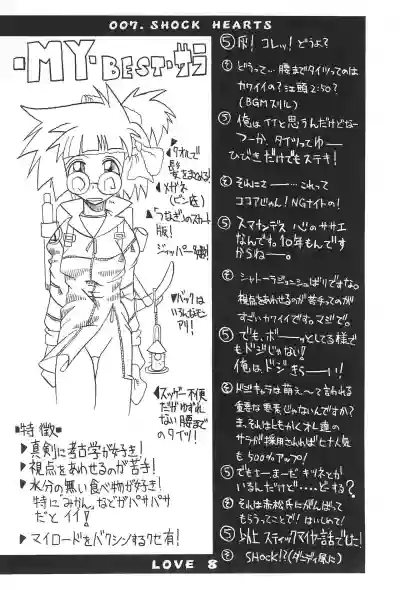 007. SHOCK HEARTS
・MY・BEST・サラ
◀タオルで
髪をまとめる!
◀メガネ
(ビン底)
◀うなぎのスカート
版!
ジッパー多数!
◀バックは
いろんなモン
アリ!
◀スッゲー不便
だがゆずれ
ない腰まで
のタイツ!
■特徴■
▶真剣に考古学が好き!
▶視点をあわせるのが苦手!
▶水分の無い食べ物が好き!
特にみかんなどがパサパサ
だとイイ!
▶マイロードをバクシンするクセ有!
⑤ 灰! コレッ! どうよ?
どうって…腰までタイツってのは
カワイイの? 江頭2:50?
(BGMスリル)
⑤ 俺はイイと思うんだけどなー
つーか、タイツってゆー
ひびきだけでもステキ!
それにさー……これって
ココアじゃん! NGナイトの!
⑤ スマナンデス 心のササエ
なんです。10年もんです
からねー。
シャトーラジョンシュばりですな。
視点をあわせるのが苦手ってのが
すごいカワイイです。マジで。
⑤ でも、ボーーッとしてる様で
もドジじゃない!
俺は、ドジきらーい!
ドジキャラは萌え〜て言われる
重要な要素じゃないんですか?
ま、それはともかくオレ達の
サラが採用されればヒナ人気
も500%アップ!
⑤ でもさーまーだキツネとか
いるんだけど‥‥どーする?
それは赤松氏にがんばって
もらうってことで! はいしめて!
⑤ 以上 スティックマイヤー話でした!
SHOCK!?(ダンディ風に)
LOVE 8